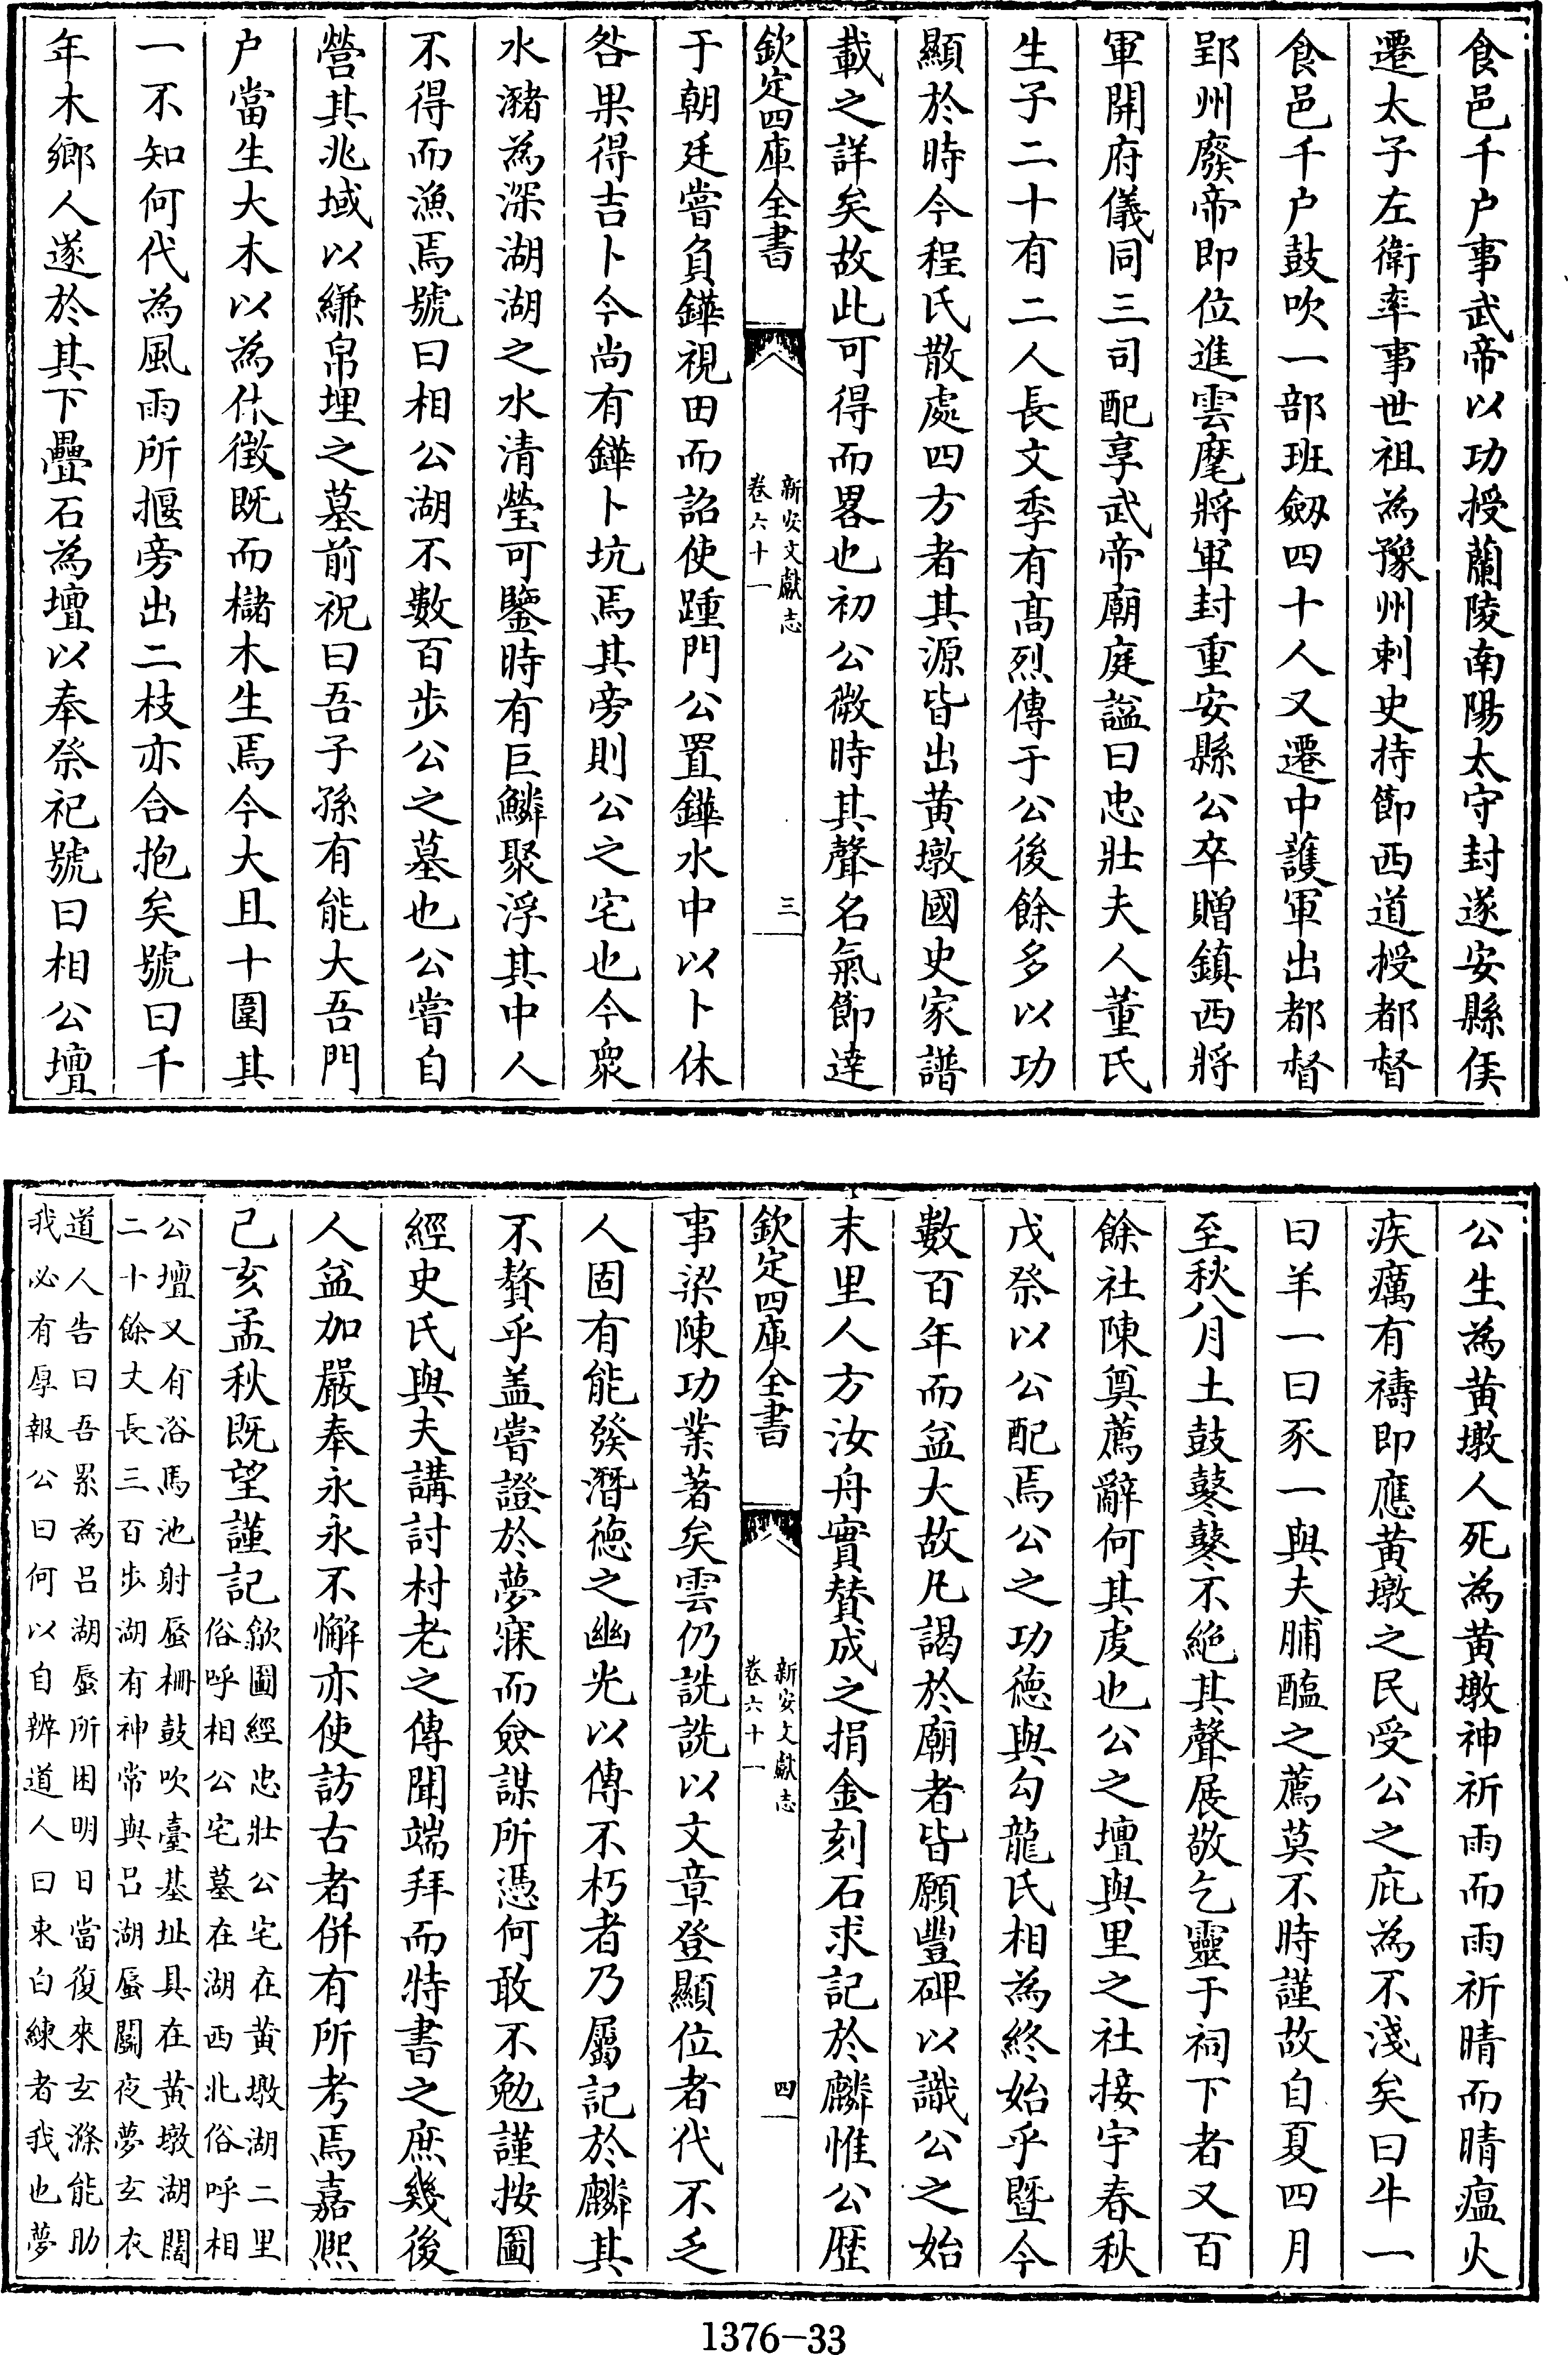 食邑千户事武帝以功授蘭陵南陽太守封遂安縣侯
遷太子左衛率事世祖為豫州刺史持節西道授都督
食邑千户鼓吹一部班劔四十人又遷中護軍出都督
郢州廢帝即位進雲麾將軍封重安縣公卒贈鎮西將
軍開府儀同三司配享武帝廟庭諡曰忠壯夫人董氏
生子二十有二人長文季有髙烈傳于公後餘多以功
顯於時今程氏散處四方者其源皆出黄墩國史家譜
載之詳矣故此可得而畧也初公微時其聲名氣節達
欽定四庫全書
新安文獻志
卷六十一
三
于朝廷嘗負鏵視田而詔使踵門公置鏵水中以卜休
咎果得吉卜今尚有鏵卜坑焉其旁則公之宅也今衆
水瀦為深湖湖之水清瑩可鑒時有巨鱗聚浮其中人
不得而漁焉號曰相公湖不數百步公之墓也公嘗自
營其兆域以縑帛埋之墓前祝曰吾子孫有能大吾門
户當生大木以為休徴既而櫧木生焉今大且十圍其
一不知何代為風雨所揠旁出二枝亦合抱矣號曰千
年木鄉人遂於其下疊石為壇以奉祭祀號曰相公壇
公生為黄墩人死為黄墩神祈雨而雨祈晴而晴瘟火
疾癘有禱即應黄墩之民受公之庇為不淺矣曰牛一
曰羊一曰豕一與夫脯醢之薦莫不時謹故自夏四月
至秋八月土鼓鼕鼕不絶其聲展敬乞靈于祠下者又百
餘社陳奠薦辭何其虔也公之壇與里之社接宇春秋
戊祭以公配焉公之功德與勾龍氏相為終始乎暨今
數百年而益大故凡謁於廟者皆願豐碑以識公之始
末里人方汝舟實賛成之捐金刻石求記於麟惟公歴
欽定四庫全書
新安文獻志
卷六十一
四
事梁陳功業著矣雲仍詵詵以文章登顯位者代不乏
人固有能發潛德之幽光以傳不朽者乃屬記於麟其
不贅乎盖嘗證於夢寐而僉謀所憑何敢不勉謹按圖
經史氏與夫講討村老之傳聞端拜而特書之庶幾後
人益加嚴奉永永不懈亦使訪古者併有所考焉嘉熙
己亥孟秋既望謹記
歙圖經忠壯公宅在黄墩湖二里
俗呼相公宅墓在湖西北俗呼相
公壇又有浴馬池射蜃柵鼓吹臺基址具在黄墩湖闊
二十餘丈長三百步湖有神常與吕湖蜃鬭夜夢玄衣
道人告曰吾累為吕湖蜃所困明日當復來玄滌能助
我必有厚報公曰何以自辨道人曰束白練者我也夢
1376-33